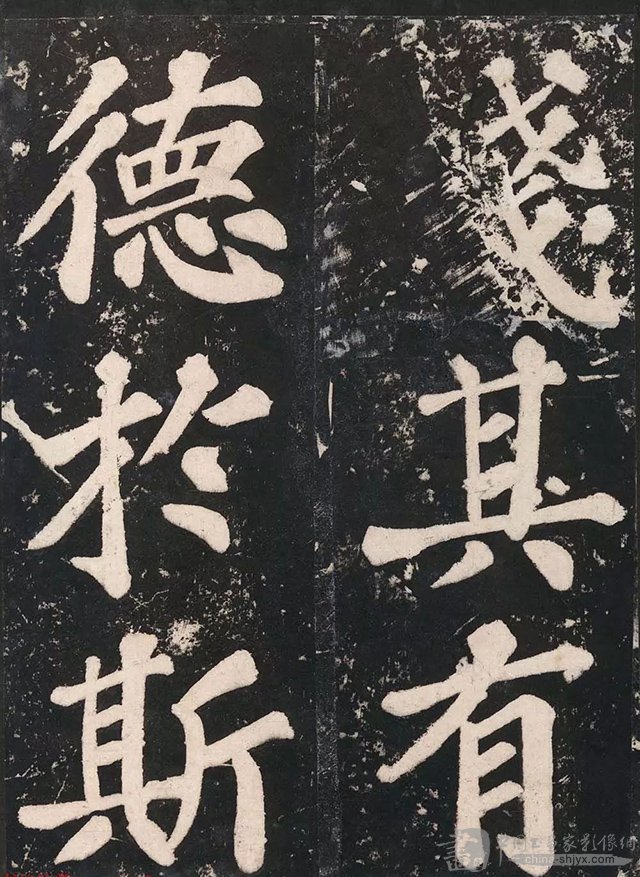 其有
德於斯
china-shjyx.com